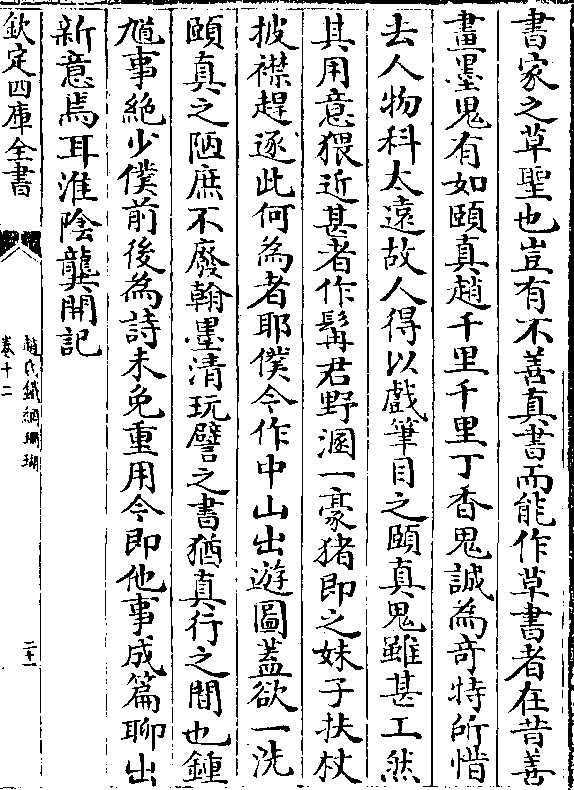 書家之草聖也豈有不善真書而能作草書者在昔善
畫墨鬼有如頤真趙千里千里丁香鬼誠為竒特所惜
去人物科太逺故人得以戲筆目之頤真鬼雖甚工然
其用意猥近甚者作髯君野溷一豪猪即之妹子扶杖
披襟趕逐此何為者耶僕今作中山出遊圖葢欲一洗
頤真之陋庶不廢翰墨清玩譬之書猶真行之間也鍾
馗事絶少僕前後為詩未免重用今即他事成篇聊出
新意焉耳淮陰龔開記
欽定四庫全書
趙氏鐵網珊瑚
卷十二
二十一